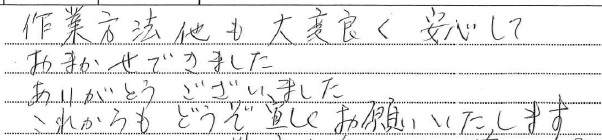 作業方法他も大変良く 安心して
おまかせできました
ありがとうございました
これからもどうぞ宜しくお願いいたします